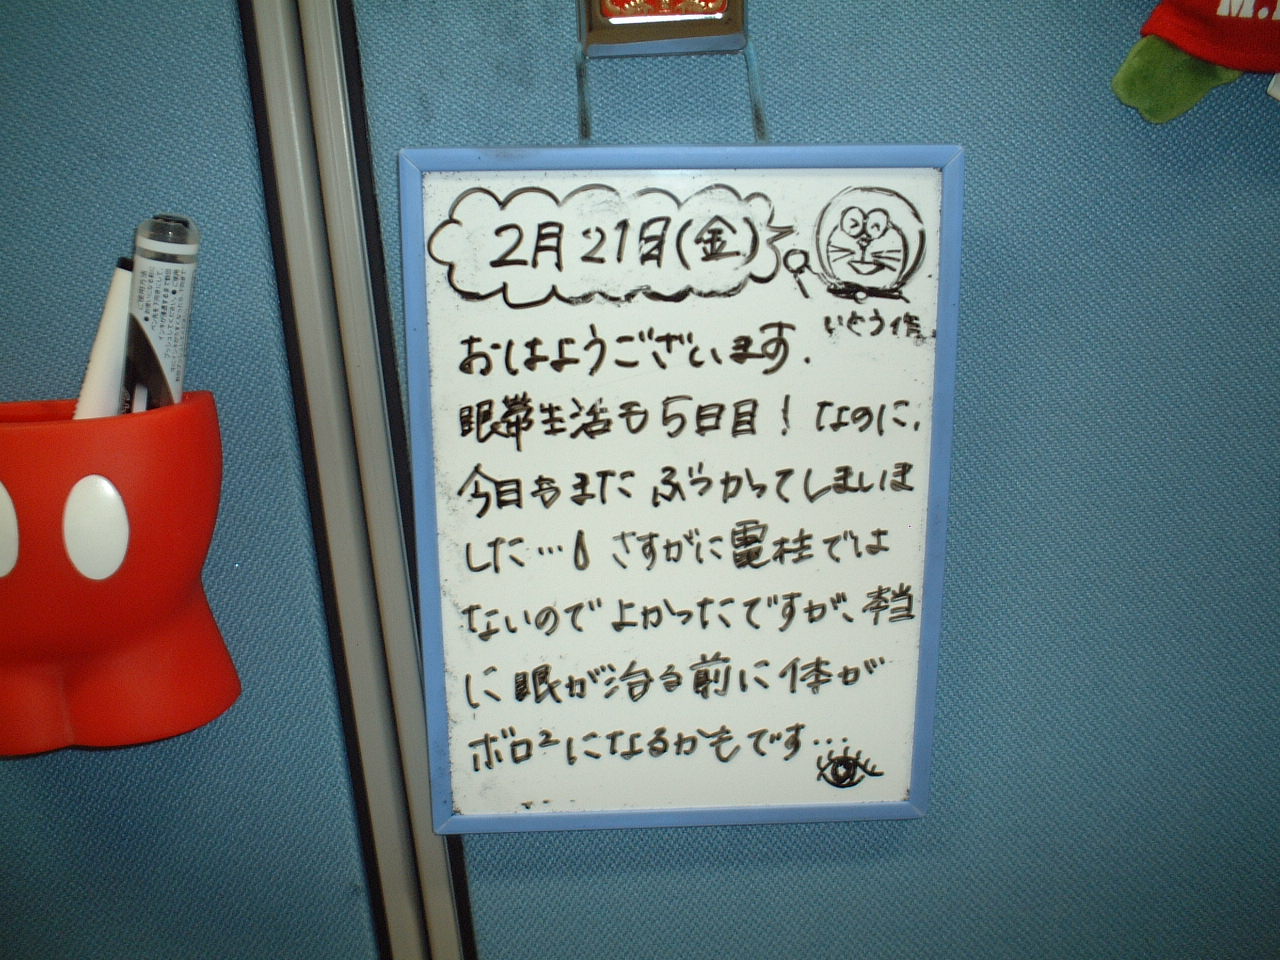 2月21日(金)
いとう作
おはようございます.
眼帯生活も5日目! なのに,
今日もまた ぶつかってしまいま
した… さすがに電柱では
ないのでよかったですが、本当
に眼が治る前に体が
ボロ²になるかもです…
M.